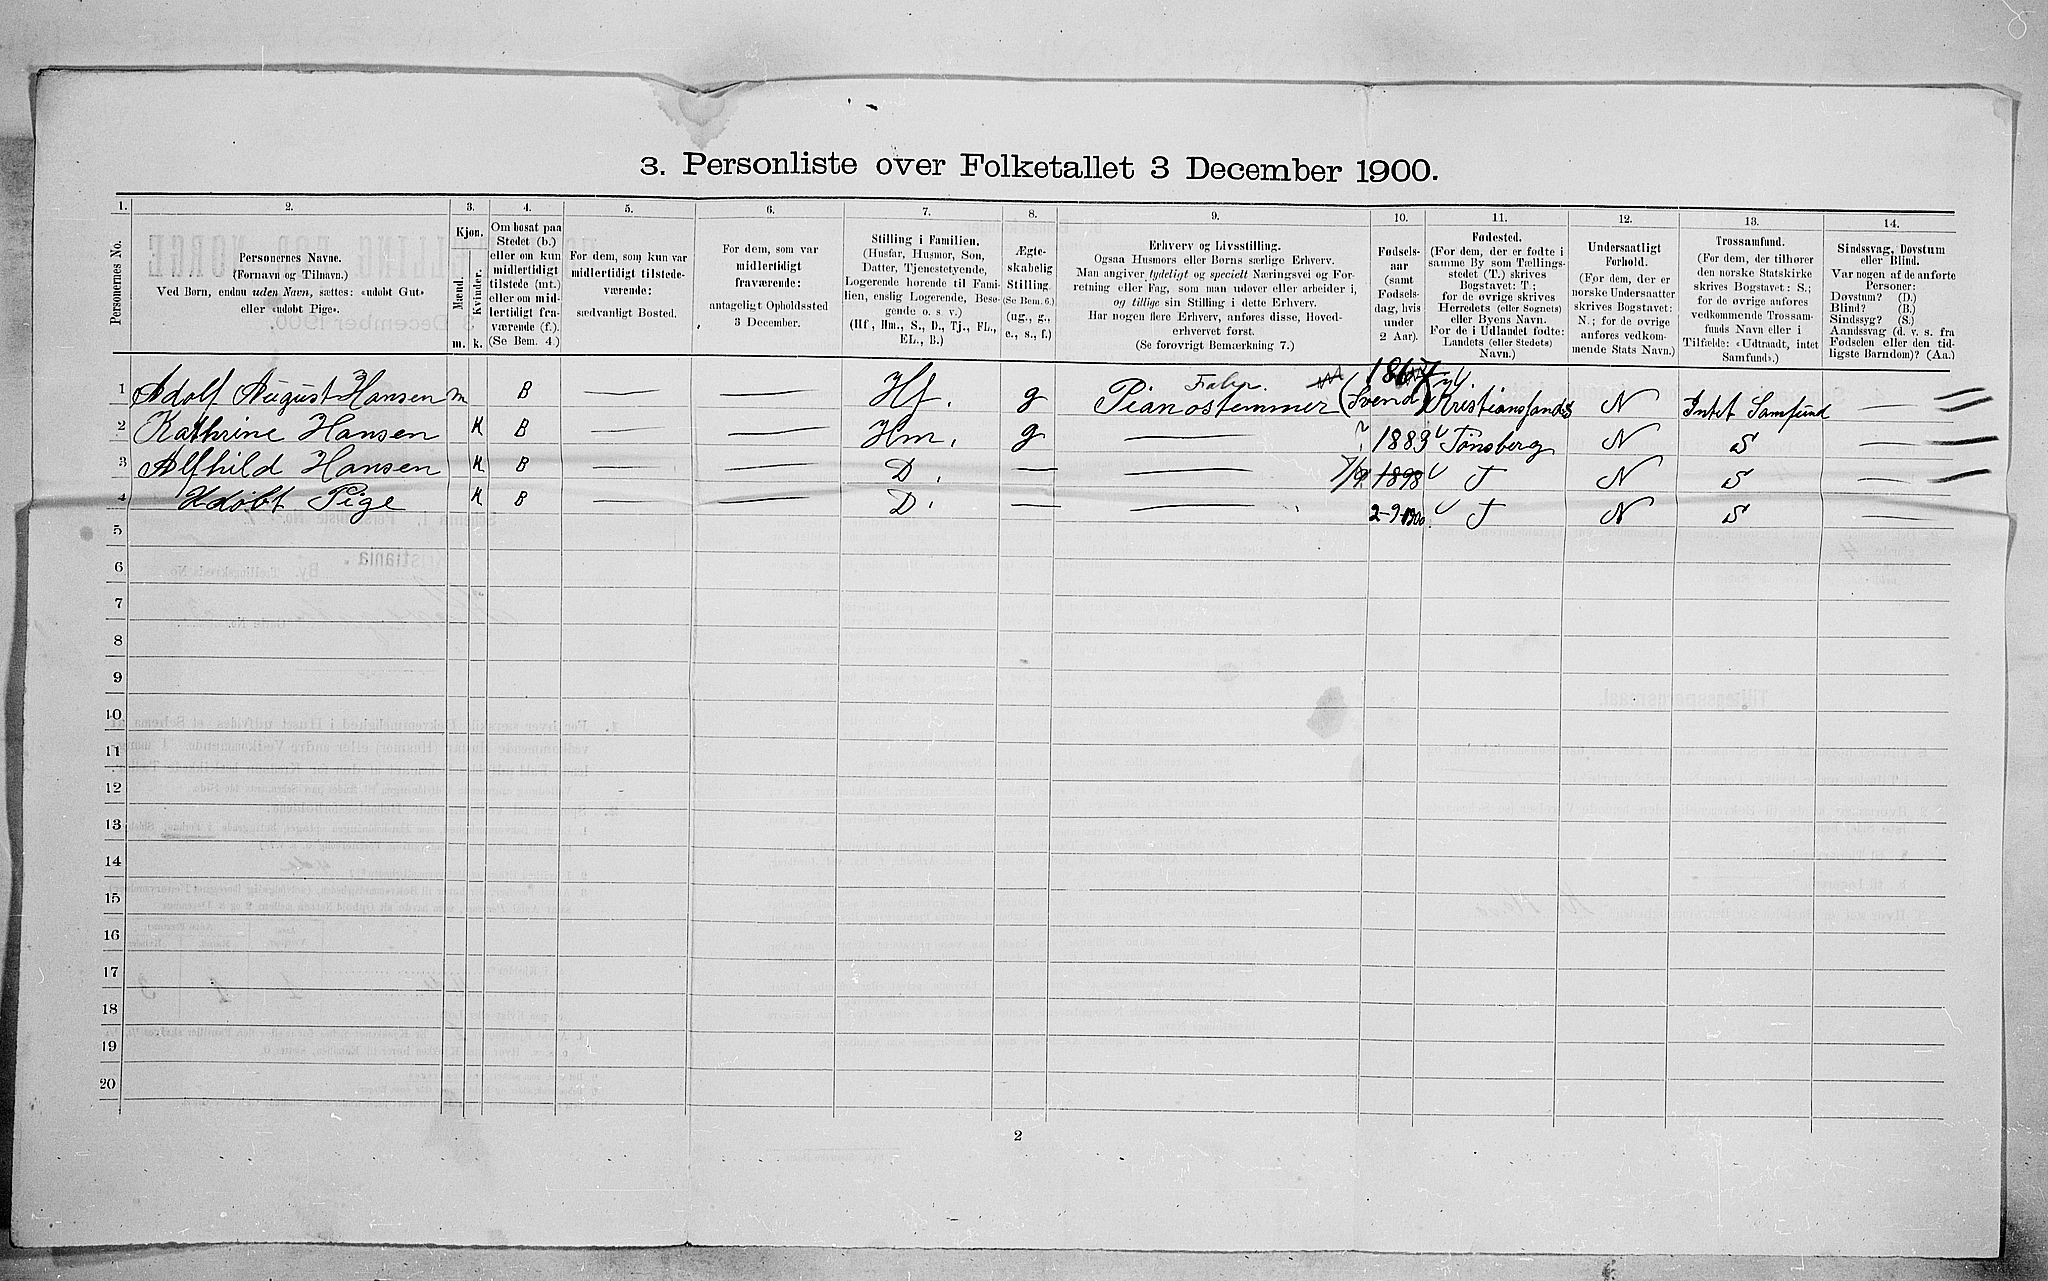 3. Personliste over Folketallet 3 December 1900.
1. 2. 3. 4. 5. 6. 7. 8. 9. 10. 11. 12. 13. 14.
Personernes No.
Personernes Navne.
(Fornavn og Tilnavn.)
Ved Børn, endnu uden Navn, sættes: «udøbt Gut»
eller «udøbt Pige».
Kjøn.
Mænd.
Kvinder.
m. k.
Om bosat paa
Stedet (b.)
eller om kun
midlertidigt
tilstede (mt.)
eller om mid-
lertidigt fra-
værende (f.)
(Se Bem. 4.)
For dem, som kun var
midlertidigt tilstede-
værende:
sædvanligt Bosted.
For dem, som var
midlertidigt
fraværende:
antageligt Opholdssted
3 December.
Stilling i Familien.
(Husfar, Husmor, Søn,
Datter, Tjenestetyende,
Logerende hørende til Fami-
lien, enslig Logerende, Besø-
gende o. s. v.)
(Hf, Hm., S., D., Tj., FL.,
EL., B.)
Ægte-
skabelig
Stilling.
(Se Bem. 6.)
(ug., g.,
e., s., f.)
Erhverv og Livsstilling.
Ogsaa Husmors eller Børns særlige Erhverv.
Man angiver tydeligt og specielt Næringsvei og For-
retning eller Fag, som man udøver eller arbeider i,
og tillige sin Stilling i dette Erhverv.
Har nogen flere Erhverv, anføres disse, Hoved-
erhvervet først.
(Se forøvrigt Bemærkning 7.)
Fødsels-
aar
(samt
Fødsels-
dag, hvis
under
2 Aar).
Fødested.
(For dem, der er fødte i
samme By som Tællings-
stedet (T.) skrives
Bogstavet: T;
for de øvrige skrives
Herredets (eller Sognets)
eller Byens Navn.
For de i Udlandet fødte:
Landets (eller Stedets)
Navn.)
Undersaatligt
Forhold.
(For dem, der er
norske Undersaatter
skrives Bogstavet:
N.; for de øvrige
anføres vedkom-
mende Stats Navn.)
Trossamfund.
(For dem, der tilhører
den norske Statskirke
skrives Bogstavet: S.;
for de øvrige anføres
vedkommende Trossam-
funds Navn eller i
Tilfælde: «Udtraadt, intet
Samfund».)
Sindssvag, Døvstum
eller Blind.
Var nogen af de anførte
Personer:
Døvstum? (D.)
Blind? (B.)
Sindssyg? (S.)
Aandssvag (d. v. s. fra
Fødselen eller den tid-
ligste Barndom)? (Aa.)
1 Adolf August Hansen m B — — Hf. g Pianostemmer (Svend) 1867 Kristianssand S N Intet Samfund —
2 Kathrine Hansen K B — — Hm. g — 1883 Tønsberg N S —
3 Alfhild Hansen K B — — D. — — 7/12 1898 T N S —
4 Udøbt Pige K B — — D. — — 2-9-1900. T N S —
5
6
7
8
9
10
11
12
13
14
15
16
17
18
19
20
2